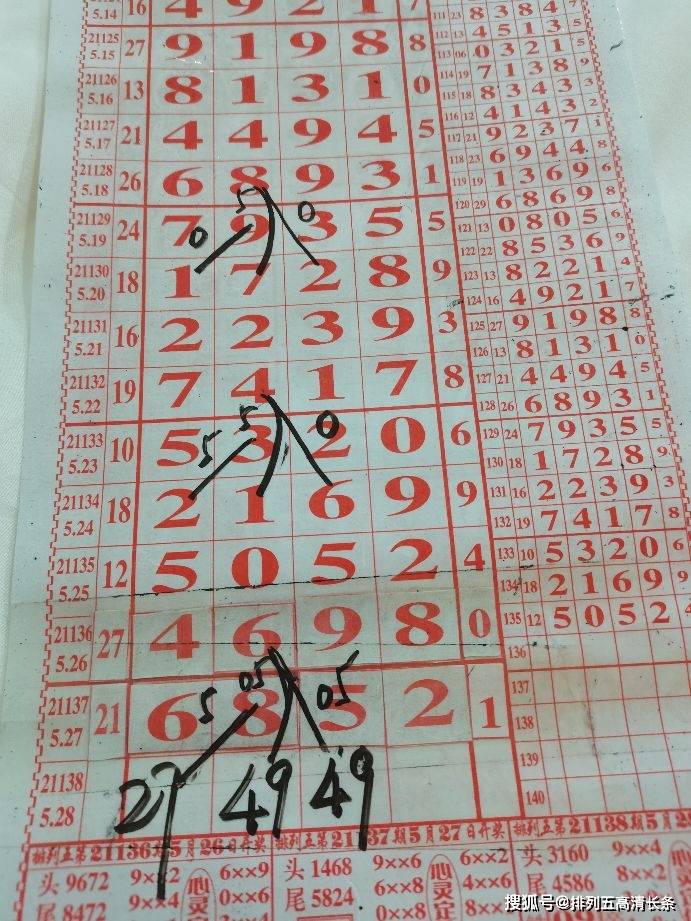 5.14 16 4 9 2 1 7
21125 5.15 27 9 1 9 8 8
21126 5.16 13 8 1 3 1 0
21127 5.17 21 4 4 9 4 5
21128 5.18 26 6 8 9 3 1
5 0
21129 5.19 24 7 9 3 5 5
0
21130 5.20 18 1 7 2 8 9
21131 5.21 16 2 2 3 9 3
21132 5.22 19 7 4 1 7 8
5 0
21133 5.23 10 5 3 2 0 6
5
21134 5.24 18 2 1 6 9 9
21135 5.25 12 5 0 5 2 4
21136 5.26 27 4 6 9 8 0
05 05
21137 5.27 21 6 8 5 2 1
5
21138 5.28
27 49 49
111 23 8 3 8 4 7
112 13 4 5 1 3 5
113 06 0 3 2 1 5
114 19 7 1 3 8 9
115 18 8 3 4 3 3
116 12 4 1 4 3 2
117 21 9 2 3 7 1
118 23 6 9 4 4 8
119 19 1 3 6 9 6
120 29 6 8 6 9 8
121 13 0 8 0 5 6
122 22 8 5 3 6 9
123 13 8 2 2 1 4
124 16 4 9 2 1 7
125 27 9 1 9 8 8
126 13 8 1 3 1 0
127 21 4 4 9 4 5
128 26 6 8 9 3 1
129 24 7 9 3 5 5
130 18 1 7 2 8 9
131 16 2 2 3 9 3
132 19 7 4 1 7 8
133 10 5 3 2 0 6
134 18 2 1 6 9 9
135 12 5 0 5 2 4
136
137
138
139
140
排列五第21136期5月26日开奖 排列五第21137期5月27日开奖 排列五第21138期5月28
头 9672 9×× 2 6××9 头 1468 9××6 6××2 头 3160 9××4
尾 8472 9××4 0××6 尾 5824 6××8 4××6 尾 4586 8××2
心灵 心灵
搜狐号@排列五高清长条